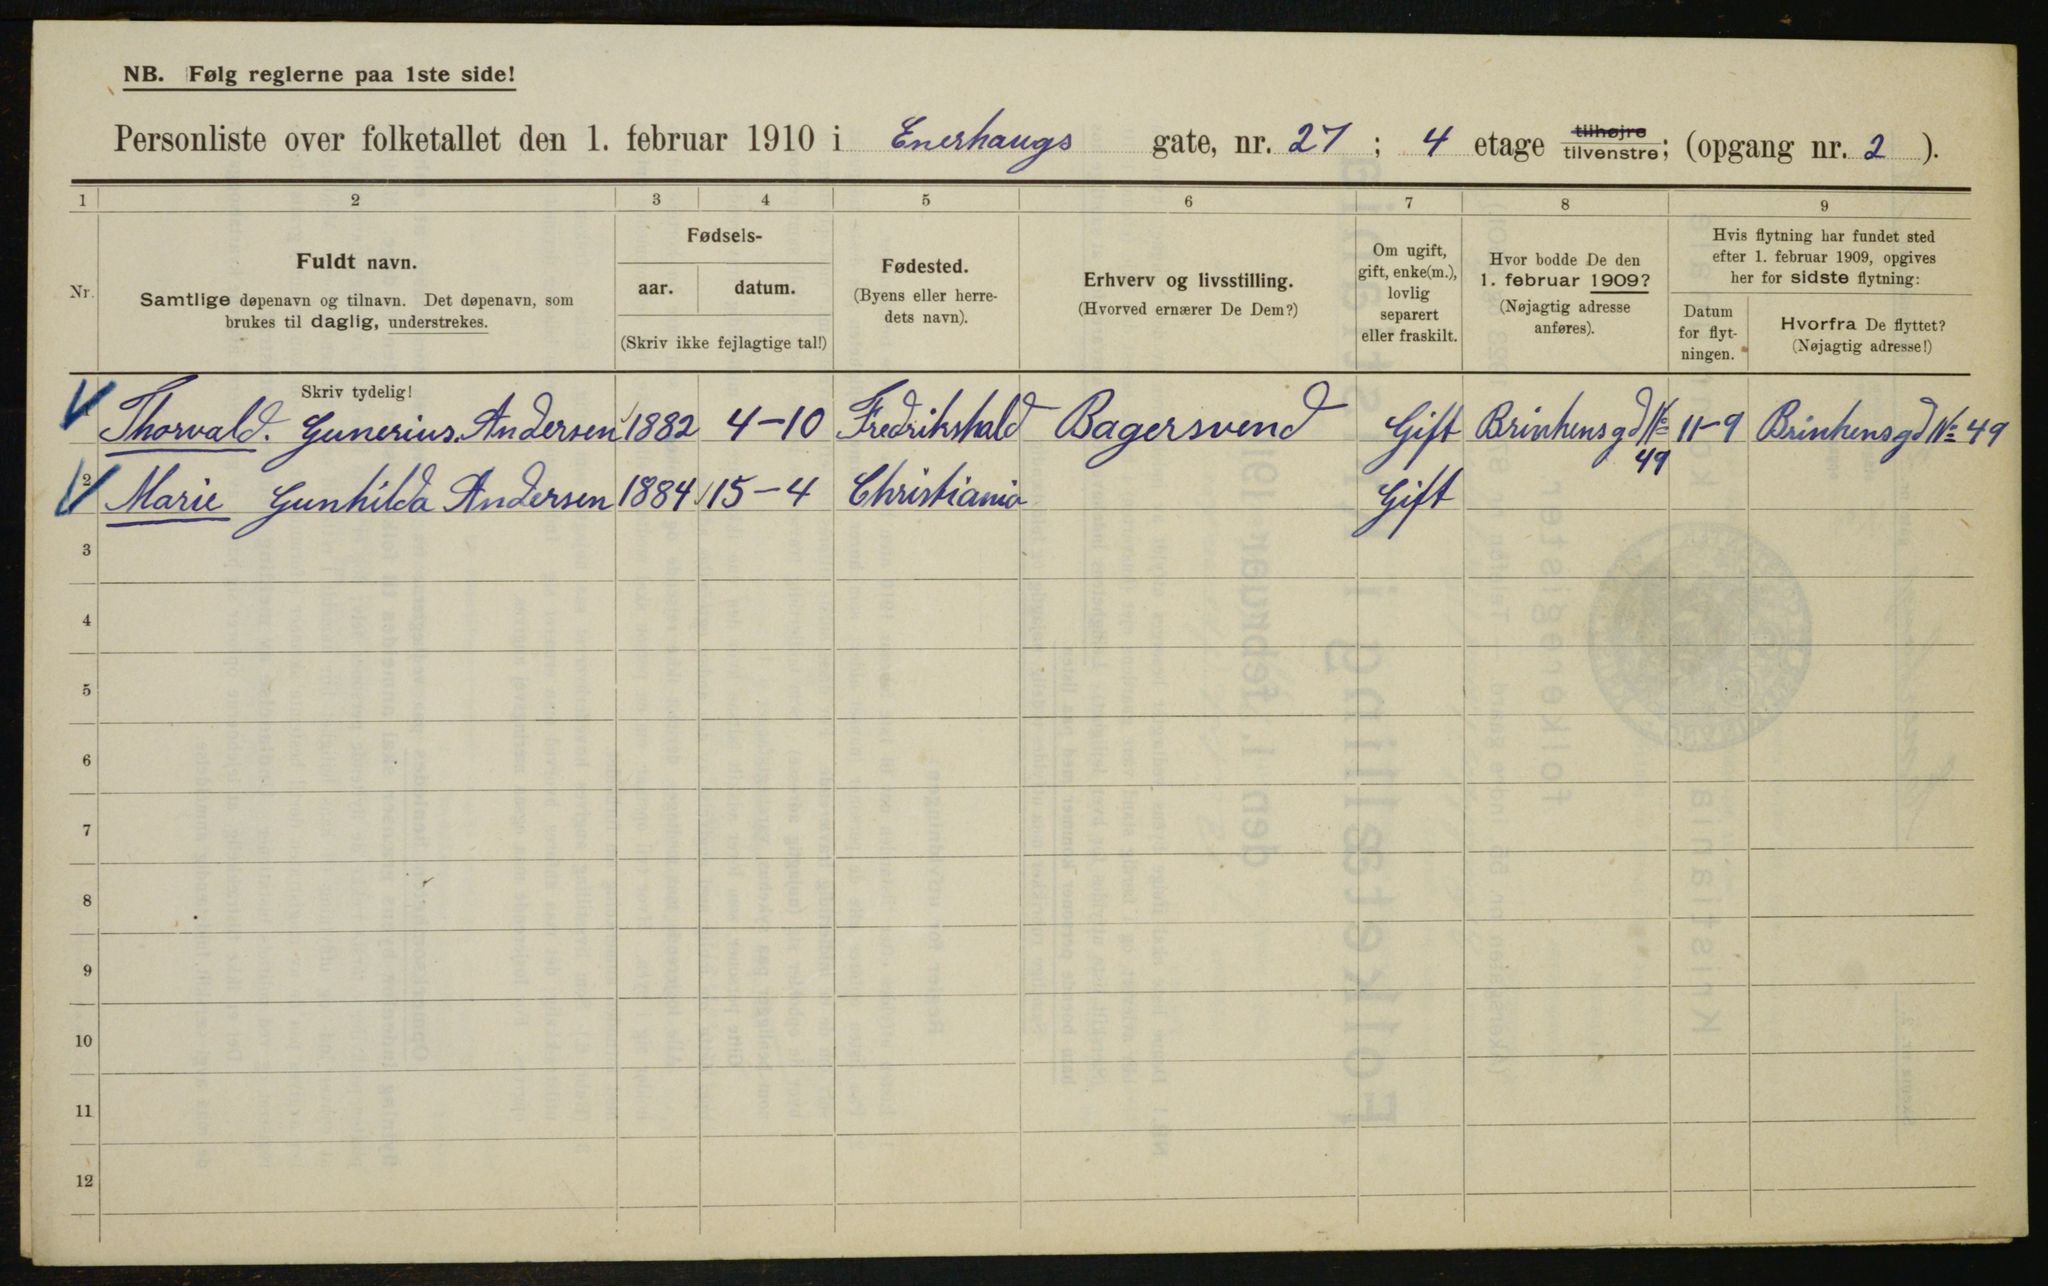 NB. Følg reglerne paa 1ste side!
Personliste over folketallet den 1. februar 1910 i Enerhaugs gate, nr. 27 ; 4 etage tilhøjre tilvenstre; (opgang nr. 2 ).
1 2 3 4 5 6 7 8 9
Nr.
Fuldt navn.
Samtlige døpenavn og tilnavn. Det døpenavn, som
brukes til daglig, understrekes.
Fødsels-
aar. datum.
(Skriv ikke fejlagtige tal!)
Fødested.
(Byens eller herre-
dets navn).
Erhverv og livsstilling.
(Hvorved ernærer De Dem?)
Om ugift,
gift, enke(m.),
lovlig
separert
eller fraskilt.
Hvor bodde De den
1. februar 1909?
(Nøjagtig adresse
anføres).
Hvis flytning har fundet sted
efter 1. februar 1909, opgives
her for sidste flytning:
Datum
for flyt-
ningen.
Hvorfra De flyttet?
(Nøjagtig adresse!)
Skriv tydelig!
1 Thorvald. Gunerius. Andersen 1882 4-10 Fredrikshald Bagersvend Gift Brinkensgd No 49 11-9 Brinkensgd No 49
2 Marie Gunhilda Andersen 1884 15-4 Christiania Gift
3
4
5
6
7
8
9
10
11
12